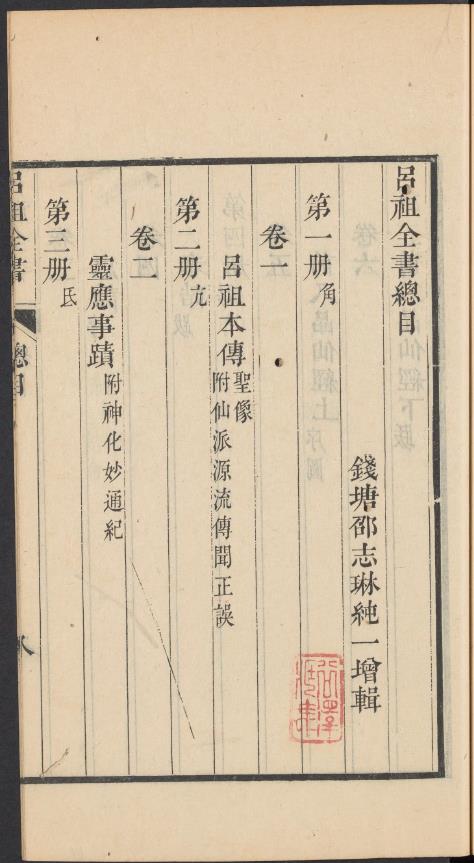 呂祖全書總目
錢塘邵志琳純一增輯
第一册 角
卷一
呂祖本傳 聖像
附仙派源流傳聞正誤
第二册 亢
卷二
靈應事蹟 附神化妙通紀
第三册 氐
呂祖全書 總目